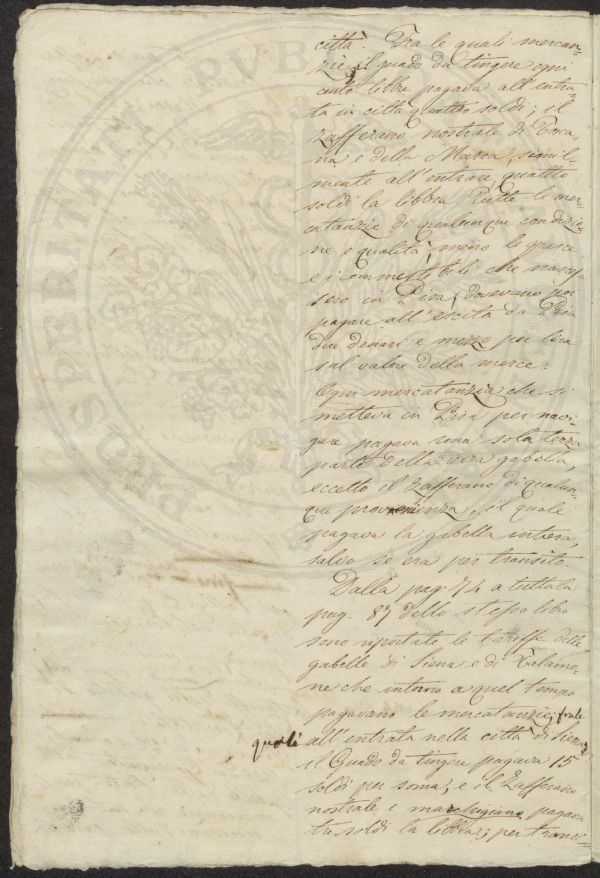 città. Tra le quali mercan-
zie il guado da tingere ogni
cento libbre pagava all'entra-
ta in città quattro soldi; il
zafferano nostrale di Tosca-
na e della Marca, simil-
mente all'entrare, quattro
soldi la libbra. Tutte le mer-
catanzie di qualunque condizio-
ne e qualità, meno le grasce
e i commestibili che nasces-
sero in Pisa, dovevano poi
pagare all'escita da Pisa
due denari e mezzo per lira
sul valore della merce:
Ogni mercatanzia che si
metteva in Pisa per navi-
gare pagava una sola terza
parte della vera gabella,
eccetto il zafferano di qualun-
que provenienza, il quale
pagava la gabella intera,
salvo se era per transito.
Dalla pag. 74 a tutta la
pag. 87 dello stesso libro
sono riportate le tariffe delle
gabelle di Siena e di Talamo-
ne che intorno a quel tempo
pagavano le mercatanzie; fra le
quali all'entrata nella città di Siena
il Guado da tingere pagava 15
soldi per soma, e il Zafferano
nostrale e marchigiano pagava
tre soldi la libbra; per transi-
PROSPERITATI PVB